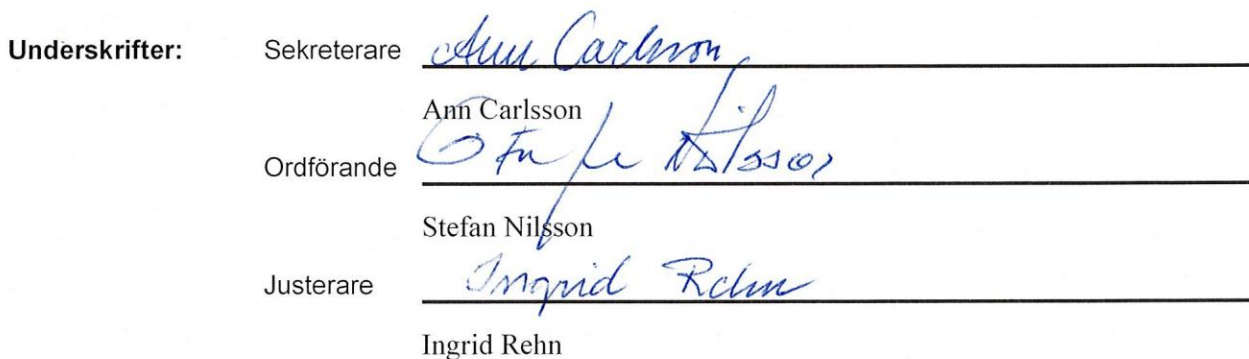 Underskrifter: Sekreterare Ann Carlsson
Ann Carlsson
Ordförande Stefan Nilsson
Stefan Nilsson
Justerare Ingrid Rehn
Ingrid Rehn